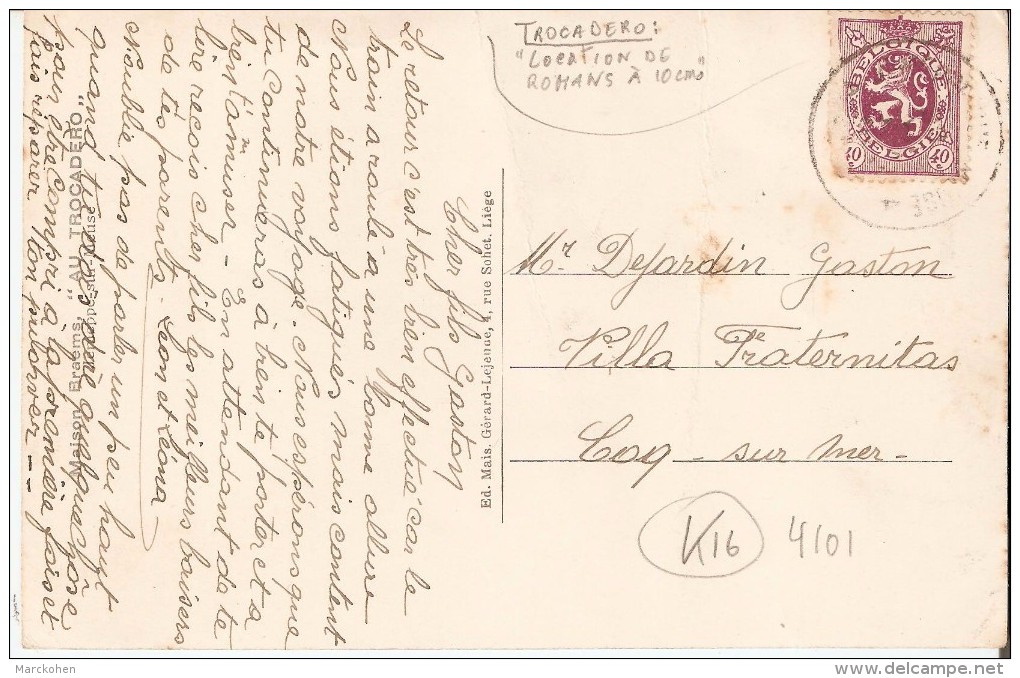 TROCADERO:
"LOCATION DE
ROMANS À 10 cmes"
BELGIQUE
BELGIË
40 40
Cher fils Gaston
Le retour c'est très bien effectué car le
train a roulé a une bonne allure
Nous étions fatigués mais content
de notre voyage. Nous espérons que
tu continueras à bien te porter et a
bien t'amuser - En attendant de te
lire reçois cher fils les meilleurs baisers
de tes parents. Léon et Léona
N'oublie pas de parler un peu haut
quand tu demande quelque chose
pour être compri à la première fois et
fais réparer ton pulower -
Maison Braems, "AU TROCADERO"
Hermalle-sur-Meuse
Ed. Mais. Gérard-Lejeune, 4, rue Sohet. Liége
Mr Dejardin Gaston
Villa Fraternitas
Coq - sur mer -
K16 4101
Marckohen
delcampe.net